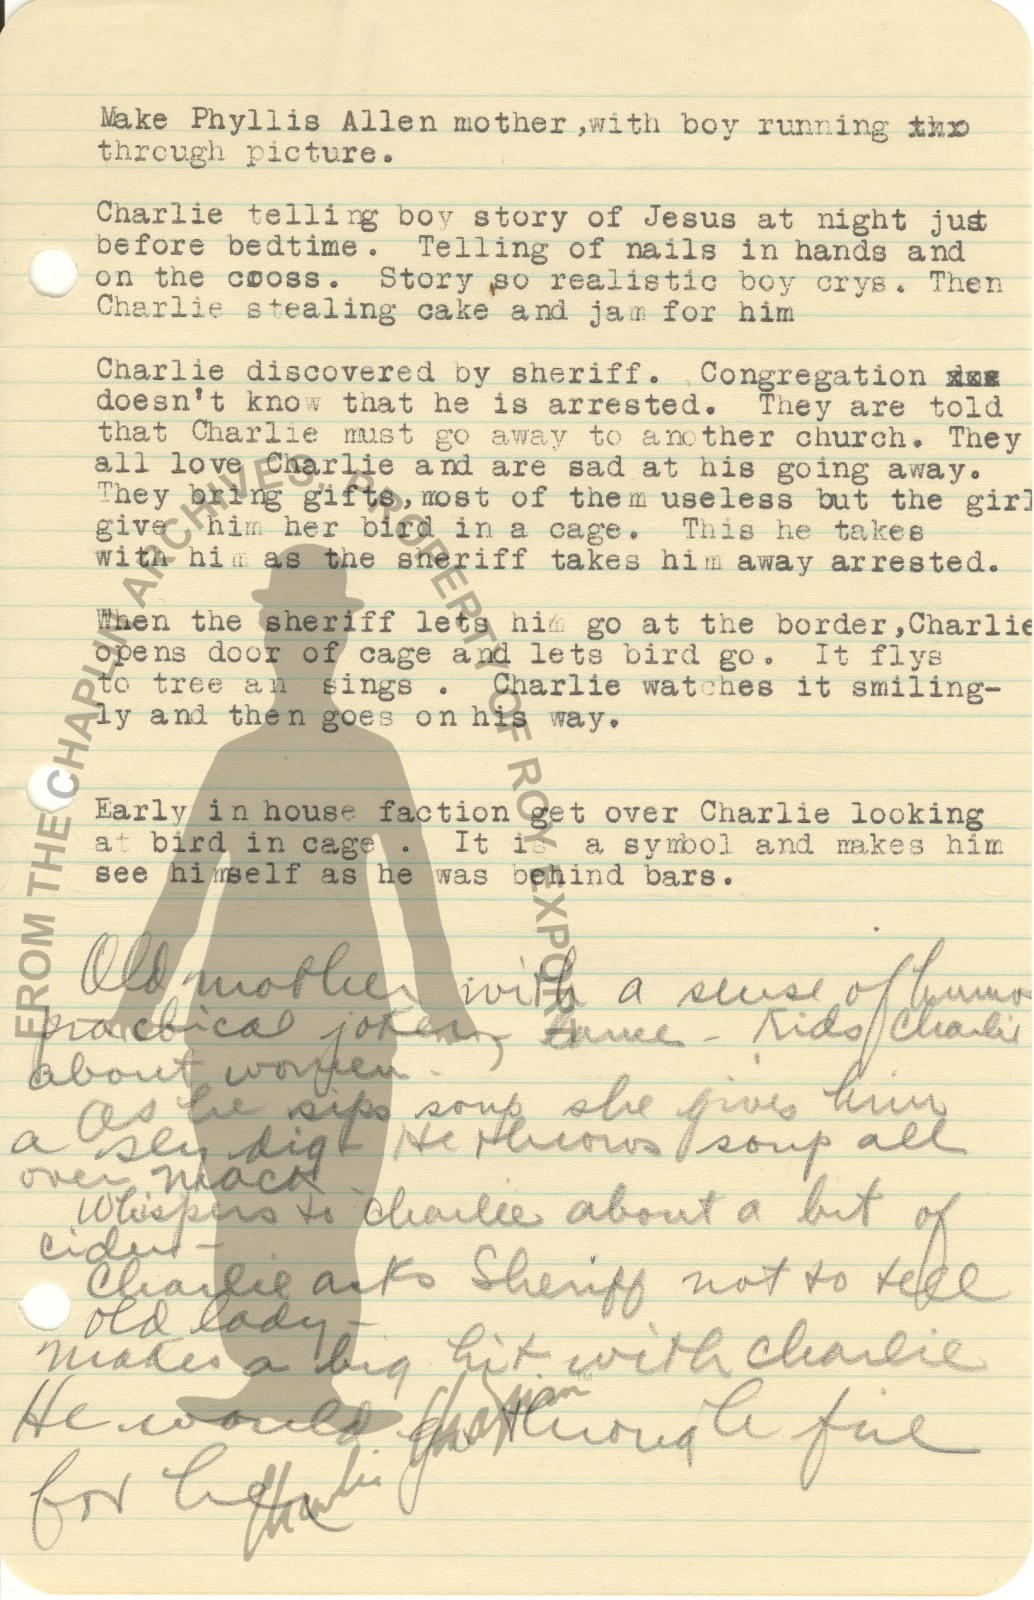 Make Phyllis Allen mother,with boy running thr
through picture.
Charlie telling boy story of Jesus at night just
before bedtime. Telling of nails in hands and
on the cross. Story so realistic boy crys. Then
Charlie stealing cake and jam for him
Charlie discovered by sheriff. Congregation
doesn't know that he is arrested. They are told
that Charlie must go away to another church. They
all love Charlie and are sad at his going away.
They bring gifts,most of them useless but the girl
give him her bird in a cage. This he takes
with him as the sheriff takes him away arrested.
When the sheriff lets him go at the border,Charlie
opens door of cage and lets bird go. It flys
to tree an sings . Charlie watches it smiling-
ly and then goes on his way.
Early in house faction get over Charlie looking
at bird in cage . It is a symbol and makes him
see himself as he was behind bars.
Old mother with a sense of humo
practical joker, - Kids Charlie
about women.
As he sips soup she gives him
a sly dig. He throws soup all
over Mack
Whispers to Charlie about a bit of
cider -
Charlie asks Sheriff not to tell
old lady -
makes a big hit with Charlie
He would go through fire
for her
FROM THE CHAPLIN ARCHIVES, PROPERTY OF ROY EXPORT
Charlie Chaplin™